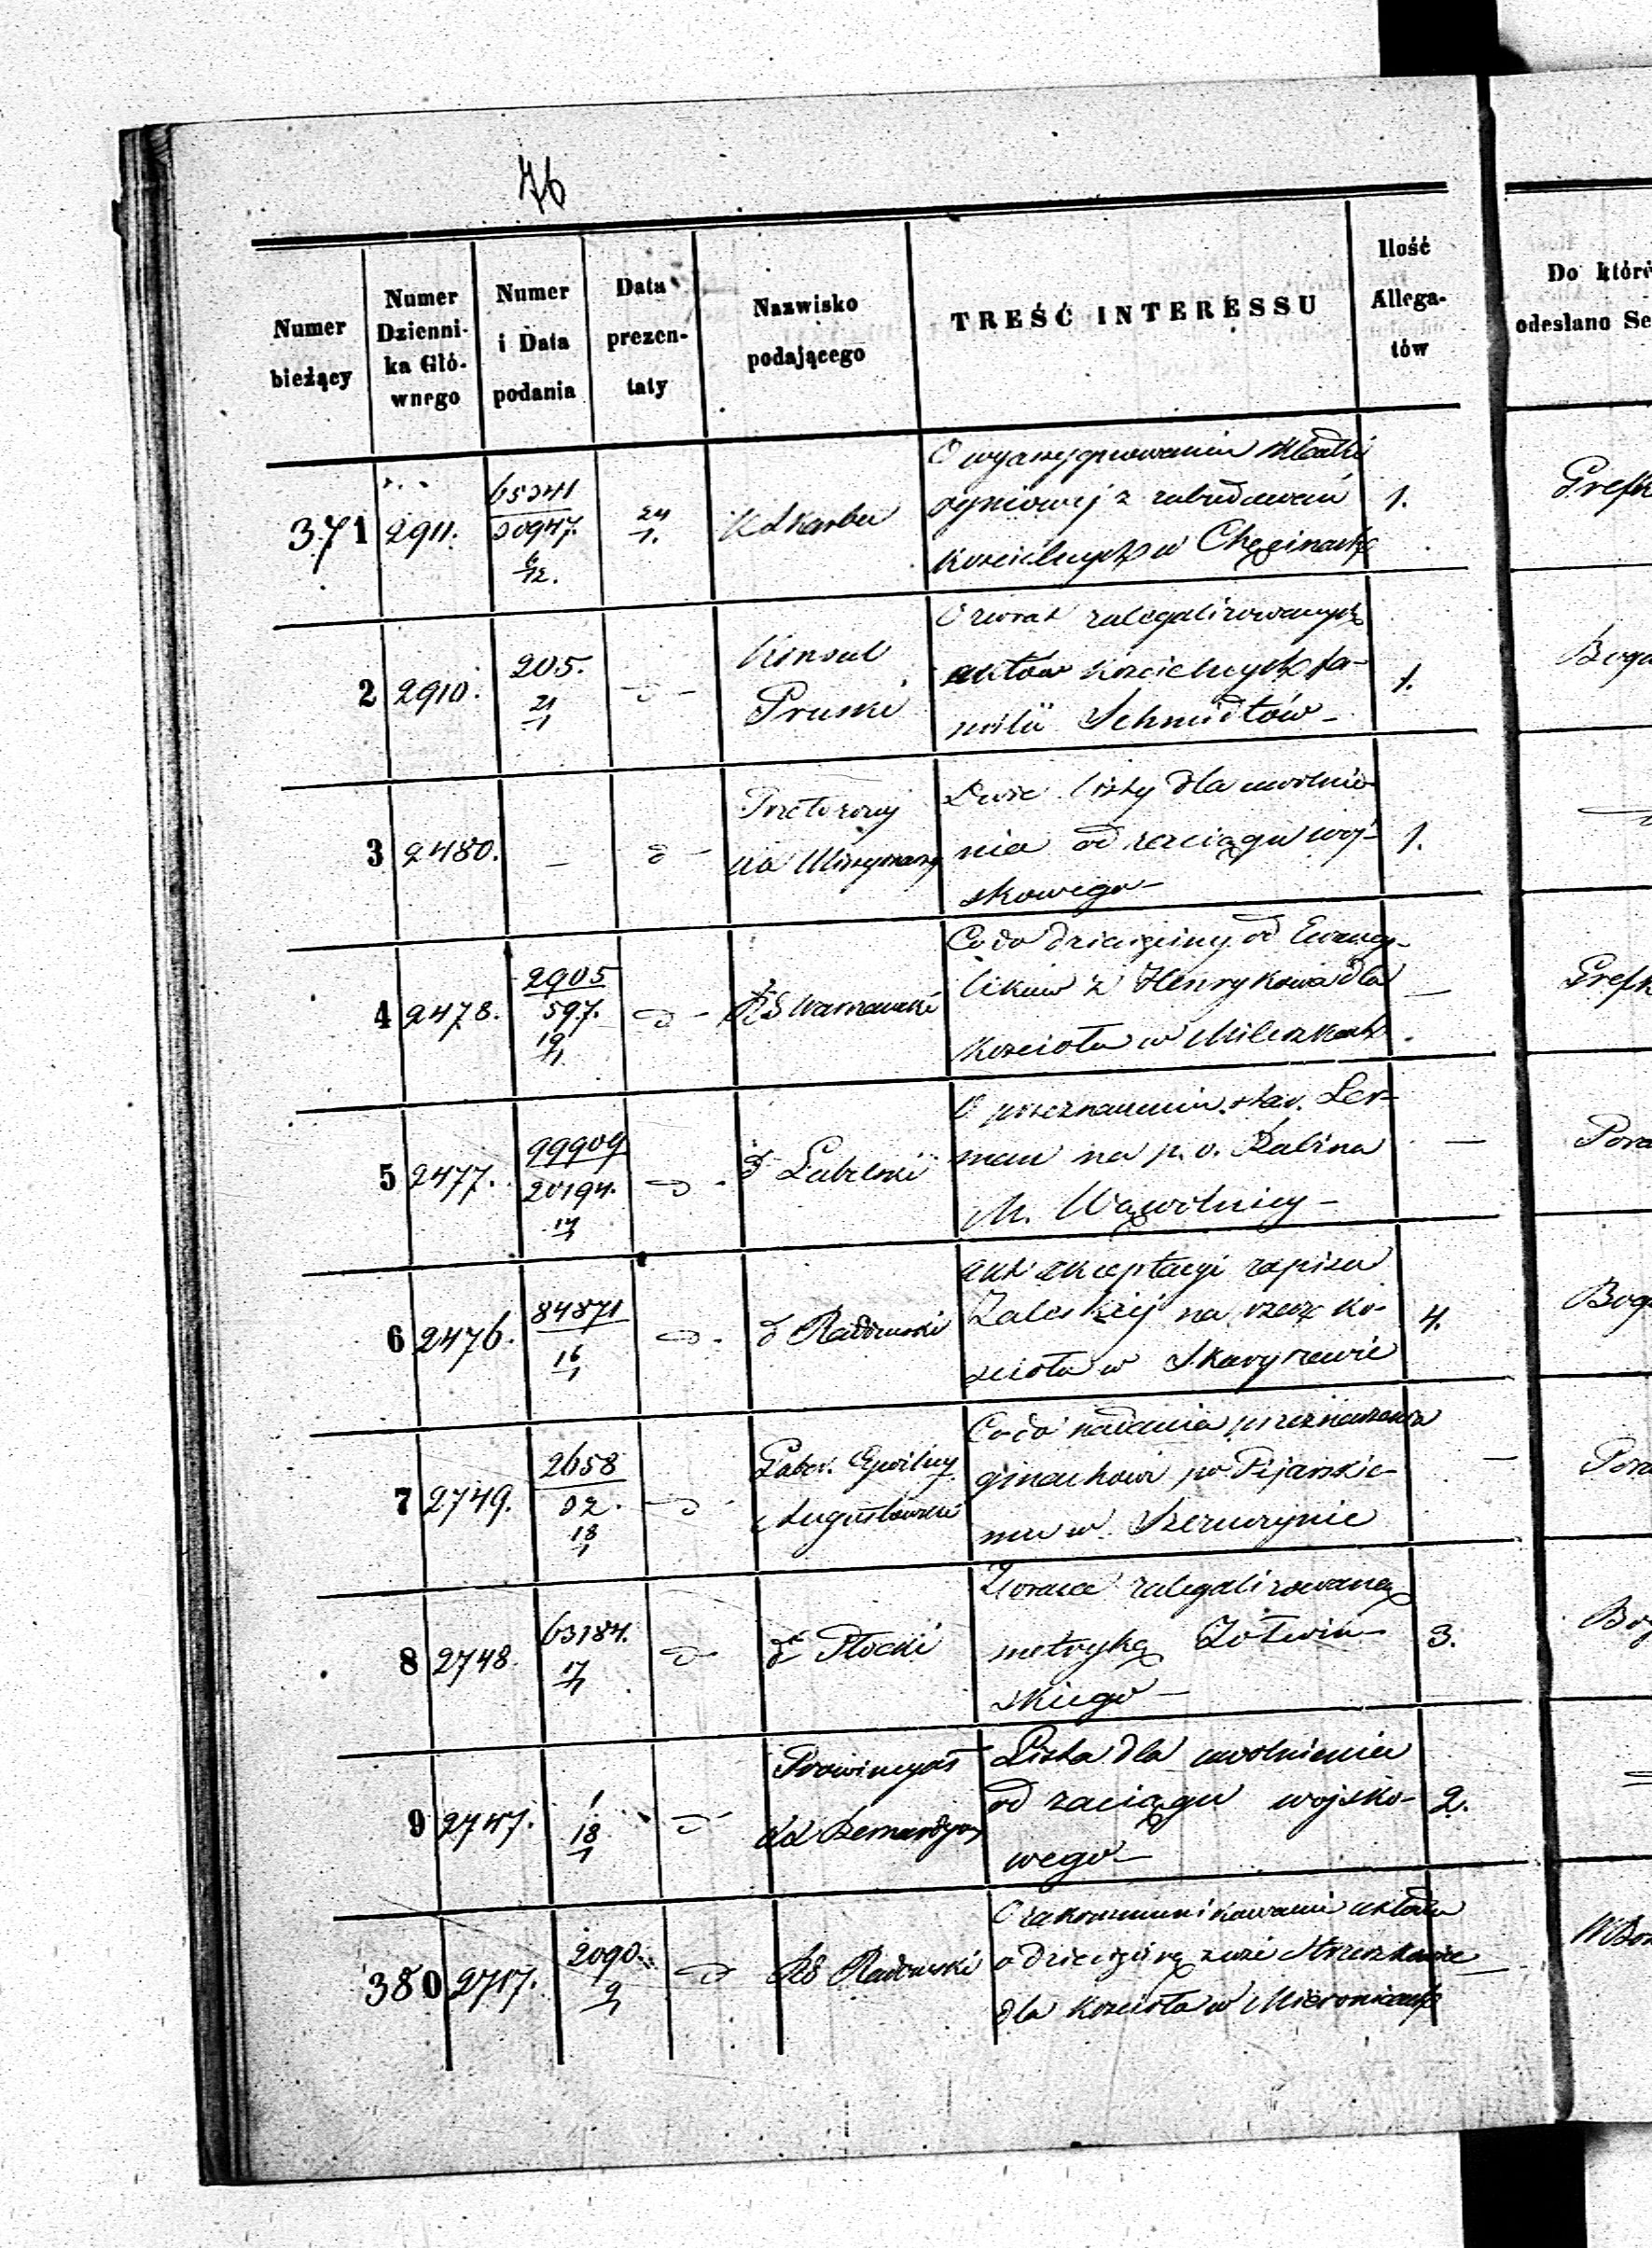 76
Numer bieżący | Numer Dzienni- ka Głó- wnego | Numer i Data podania | Data prezen- taty | Nazwisko podającego | TREŚĆ INTERESSU | Ilość Allega- tów | Do któr odesłano Se
371 | 2911. | 65341 / 20947. 6/12. | 24/1. | K Skarbu | O wyasygnowaniu składki | 1. | Prefk
ogniowej z zabudowań
kościelnych w Chęcinach
2 | 2910. | 205. 21/1 | d - | Konsul Pruski | O zwrot zalegalizowanych | 1. | Bogu
aktów kościelnych fa-
milii Schmidtów -
3 | 2480. | - | d - | Przełożony | Dwie listy dla uwolnie- | 1.
nia od zaciągu woj-
skowego -
4 | 2478. | 2905 / 597. 19/1 | d - | RG Warszawski | Co do dziesięciny od Ewange- | - | Prefk
likow z Henrykowa dla
kościoła w Mileszkach
5 | 2477. | 99909 / 20194. 17/1 | d - | d Lubelski | O przeznaczeniu Ler- | - | Pora
man na p. o. Rabina
M. Wąwolnicy -
6 | 2476. | 84871 16/1 | d - | d Radomski | akt akceptacyi zapisu | 4. | Bogu
Zaleskiej na rzecz ko-
ścioła w Skaryszewie
7 | 2749. | 2658 / 32. 18/1 | d - | Guber. Cywilny Augustowski | Co do nadania przeznaczenia | - | Pora
gmachowi po Pijarskie-
mu w Szczuczynie
8 | 2748. | 63184. 17/1 | d - | d Płocki | Zwraca zalegalizowaną | 3. | Bog
metrykę Żółwiń-
skiego -
9 | 2747. | 1 18/1 | d - | Prowincyał XX Bernardynów | Lista dla uwolnienia | 2.
od zaciągu wojsko-
wego -
380 | 2717. | 2090. 9/1 | d | RG Radomski | O zakommunikowanie układu | -
o dziesięcinę z wsi
dla kościoła w Mieronicach